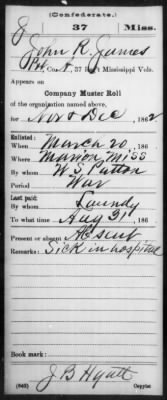 (Confederate.)
J 37 Miss.
John R. James
Pvt, Co. A, 37 Reg't Mississippi Vols.
Appears on
Company Muster Roll
of the organization named above,
for Nov & Dec, 1862.
Enlisted:
When March 20, 186
Where Marion, Miss
By whom W. S. Patton
Period War
Last paid:
By whom Lundy
To what time Aug 31, 186
Present or absent Absent
Remarks: Sick in hospital
Book mark:
J B Hyatt
(642) Copyist.